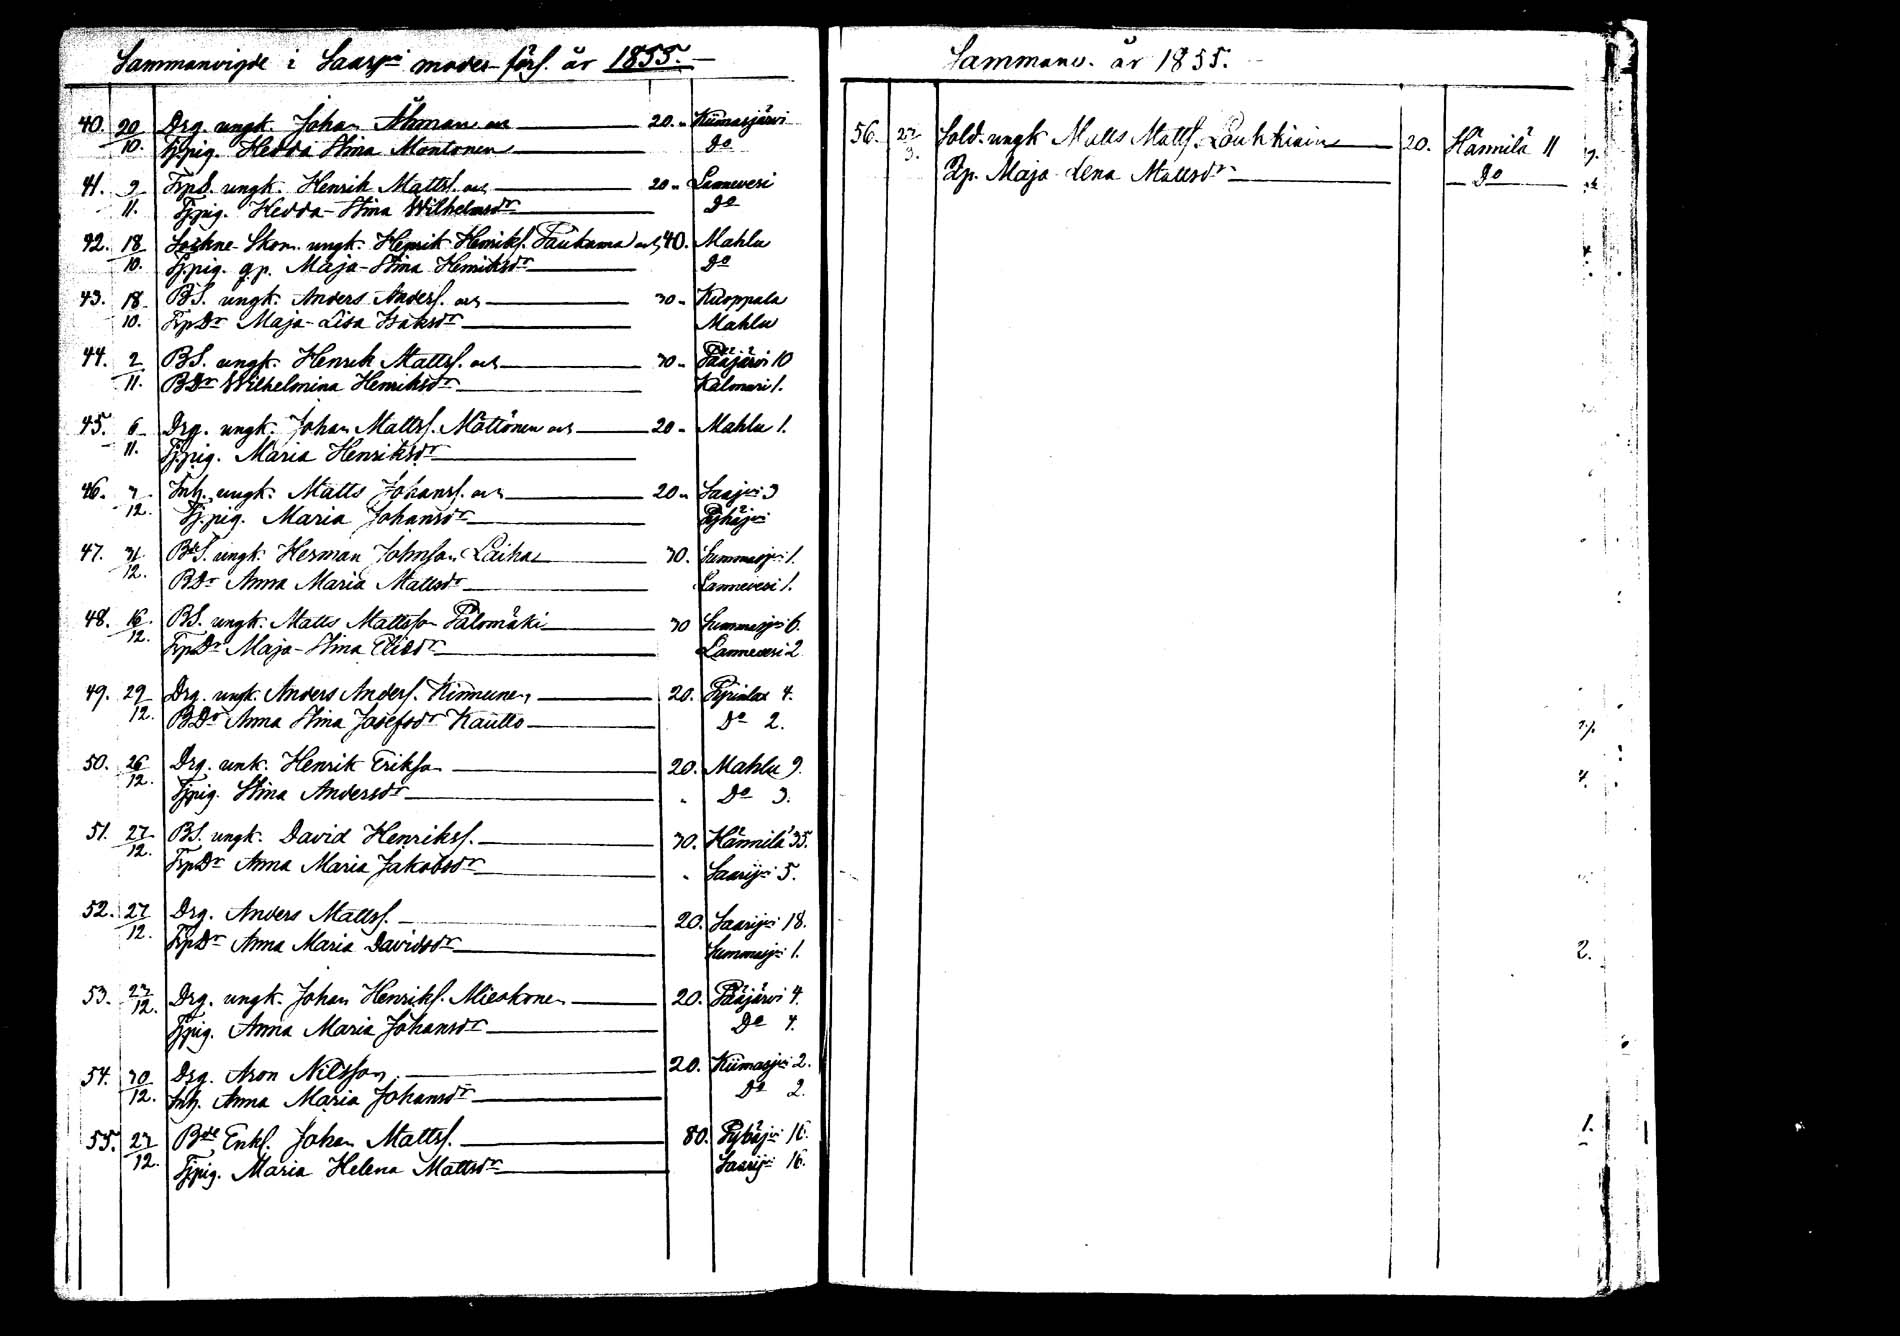 Sammanvigde i Saarjvi moder förs. år 1855.
40. 20/10. Drg. ungk. Johan Åhman och 20. Kiimasjärvi
Tj.pig. Hedda Stina Montonen Do
41. 9/11. TrpS. ungk. Henrik Matts. och 20 Lannevesi
Tjpig. Hedda-Stina Wilhelmsdr Do
42. 18/10. Sockne-Skom. ungk. Henrik Henriks. Taukama och 40. Mahlu
Tj.pig. q.p. Maja-Stina Henriksdr Do
43. 18/10. BS. ungk. Anders Anders. och 30 Kuoppala
TrpDr Maja-Lisa Isaksdr Mahlu
44. 2/11. BS. ungk. Henrik Matts. och 30 Pääjärvi 10
BDr Wilhelmina Henriksdr Kalmari 1.
45. 6/11. Drg. ungk. Johan Matts. Möttönen och 20 Mahlu 1.
Tjpig. Maria Henriksdr
46. /12. Inh. ungk. Matts Johans. och 20 Saajvi 3
Tj.pig. Maria Johansdr Pyhäjvi
47. 31/12. BdeS. ungk. Herman Johnson Laiha 30. Summasjvi 1.
BDr Anna Maria Mattsdr Lannevesi 1.
48. 16/12. BS. ungk. Matts Mattsson Palomäki 30 Summasjvi 6.
TrpDr Maja-Stina Eliedr Lannevesi 2
49. 29/12. Drg. ungk. Anders Anders. Kinnunen 20. Pyrinlax 4.
BDr Anna Stina Josefsdr Kautto Do 2.
50. 26/12. Drg. unk. Henrik Erikson 20. Mahlu 9.
Tjpig. Stina Andersdr Do 3.
51. 27/12. BS. ungk. David Henriks. 30. Hännilä 35.
TrpDr Anna Maria Jakobsdr Saarijvi 5.
52. 27/12. Drg. Anders Matts. 20. Saarijvi 18.
TrpDr Anna Maria Davidsdr Summasjvi 1.
53. 27/12. Drg. ungk. Johan Henriks. Mieskonen 20. Pääjärvi 4.
Tjpig. Anna Maria Johansdr Do 4.
54. 30/12. Drg. Aron Nilsson 20. Kiimasjvi 2.
Inh. Anna Maria Johansdr Do 2.
55. 27/12. Bde Enkl. Johan Matts. 80. Pyhäjvi 16.
Tjpig. Maria Helena Mattsdr Saarijvi 16.
Sammanv. år 1855.
56. Sold. ungk Matts Matts. Louhkiain 20. Hännilä 11
Maja Lena Mattsdr Do
4.
2.
1.